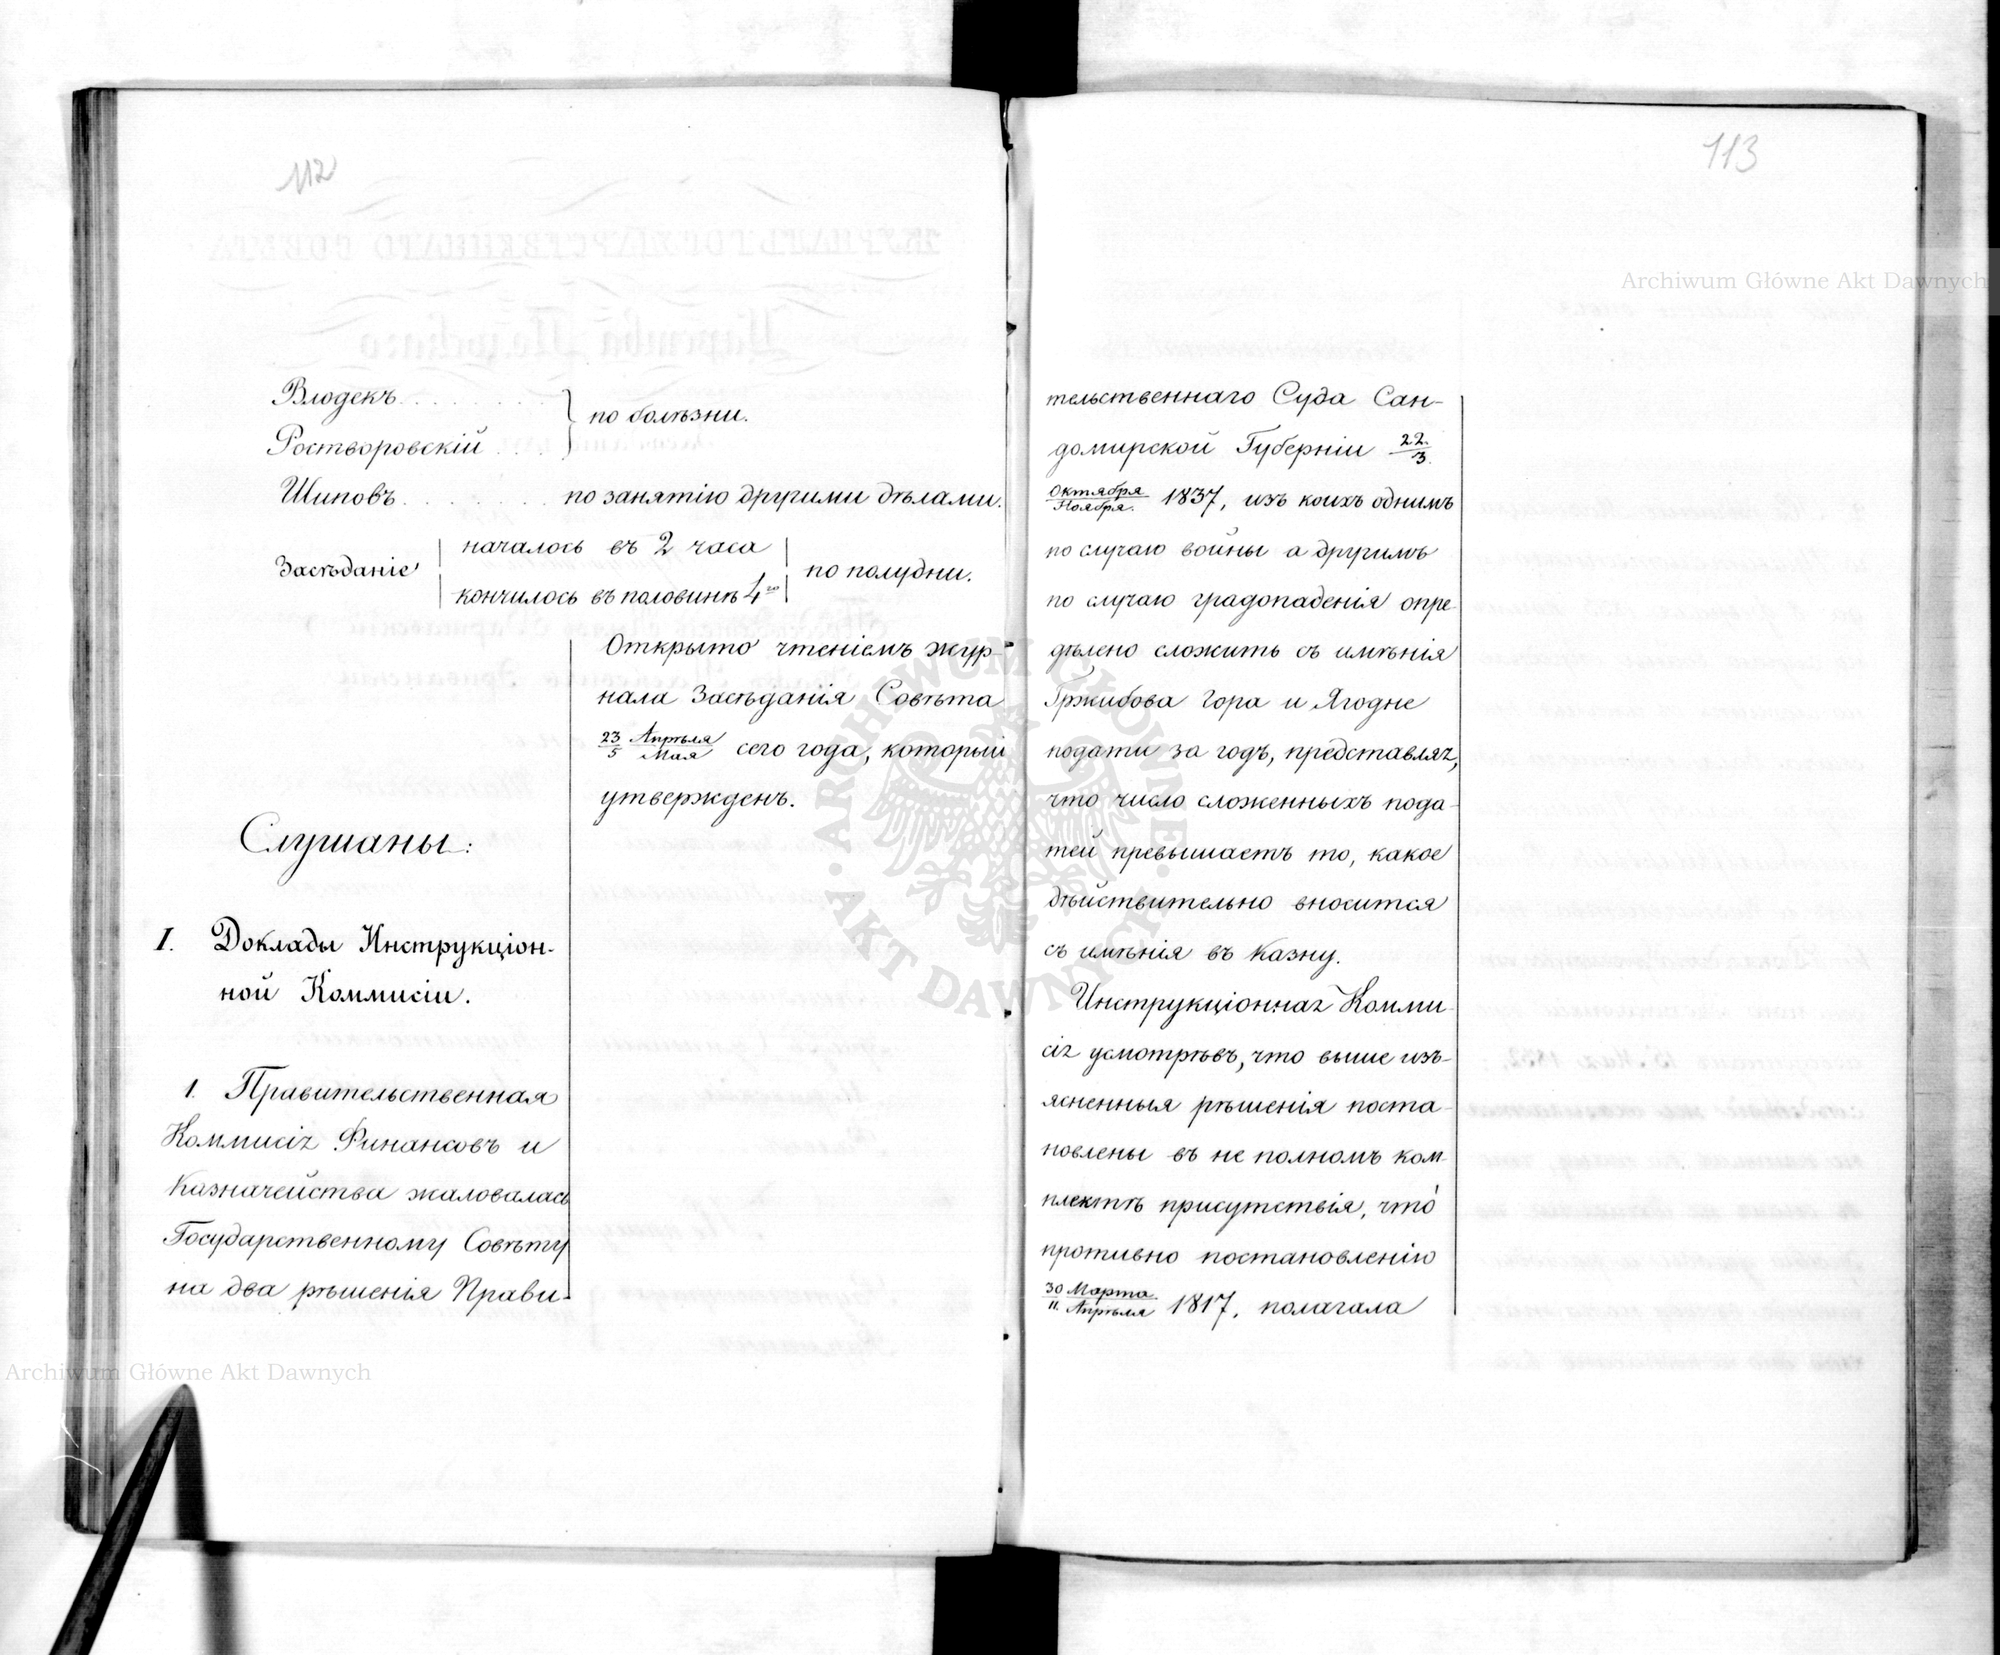 112
Влодекъ . . . . . . .
Ростворовскій . . . .
по болѣзни.
Шиповъ . . . . . . . по занятію другими дѣлами.
Засѣданіе
началось въ 2 часа
кончилось въ половинѣ 4го
по полудни.
Открыто чтеніемъ жур-
нала Засѣданія Совѣта
23/5 Апрѣля/Мая сего года, который
утвержденъ.
Слушаны:
I. Доклады Инструкціон-
ной Коммисіи.
1. Правительственная
Коммисія Финансовъ и
Казначейства жаловалась
Государственному Совѣту
на два рѣшенія Прави-
113
тельственнаго Суда Сан-
домирской Губерніи 22./3.
Октября/Ноября. 1837, изъ коихъ однимъ
по случаю войны а другимъ
по случаю градопаденія опре-
дѣлено сложить съ имѣнія
Гржибова Гора и Ягодне
подати за годъ, представляя,
что число сложенныхъ пода-
тей превышаетъ то, какое
дѣйствительно вносится
съ имѣнія въ казну.
Инструкціонная Комми-
сія усмотрѣвъ, что выше изъ-
ясненныя рѣшенія поста-
новлены въ не полномъ ком-
плектѣ присутствія, что́
противно постановленію
30/11. Марта/Апрѣля 1817, полагала
Archiwum Główne Akt Dawnych
Archiwum Główne Akt Dawnych
ARCHIWUM GŁÓWNE · AKT DAWNYCH ·